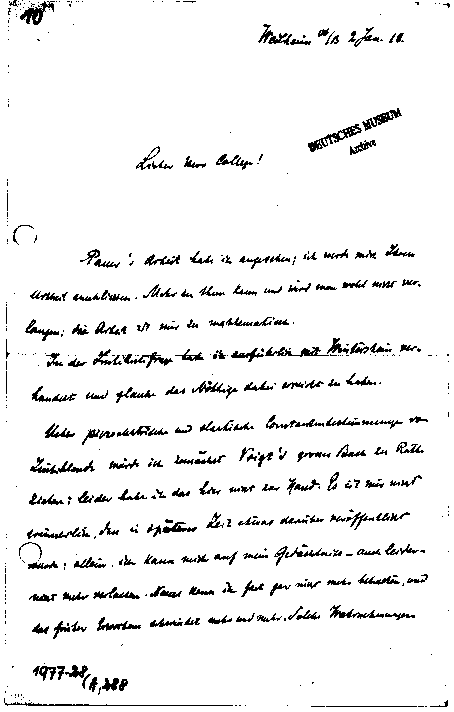 10
Weilheim 2 Jan. 18.
DEUTSCHES MUSEUM
Archive
Lieber Herr College!
Pauer's Arbeit habe ich angesehen; ich werde mich Ihrem
Urteil anschliessen. Mehr zu thun kann und wird man wohl nicht ver-
langen; die Arbeit ist mir zu mathematisch.
In der habe ich ausführlich mit ver-
handelt und glaube das Nöthige dabei erreicht zu haben.
Ueber piezoelektrische und elastische Constantenbestimmungen von
würde ich zunächst Voigt's grosses Buch zu Rathe
ziehen; leider habe ich das hier nicht zur Hand. Es ist mir nicht
erinnerlich, dass in späterer Zeit etwas darüber veröffentlicht
wurde; allein, ich kann mich auf mein Gedächtniss – auch leider –
nicht mehr verlassen. Neues kann ich fast gar nicht mehr behalten, und
das früher Erworbene schwindet mehr und mehr. Solche Wahrnehmungen
1977-28/A,288